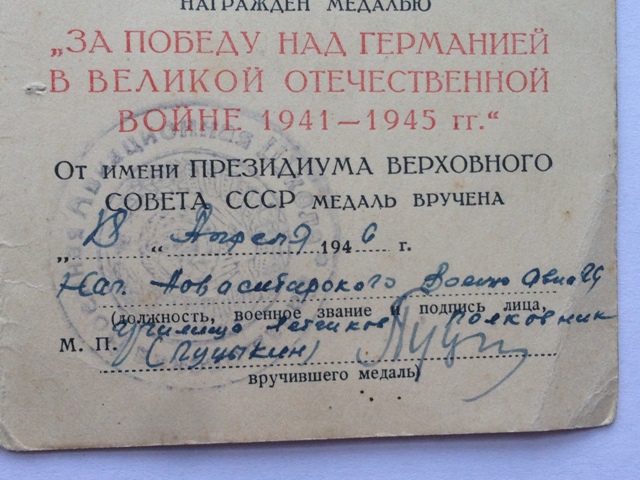 НАГРАЖДЕН МЕДАЛЬЮ
„ЗА ПОБЕДУ НАД ГЕРМАНИЕЙ
В ВЕЛИКОЙ ОТЕЧЕСТВЕННОЙ
ВОЙНЕ 1941—1945 гг.“
От имени ПРЕЗИДИУМА ВЕРХОВНОГО
СОВЕТА СССР МЕДАЛЬ ВРУЧЕНА
„ “ Апреля 1946 г.
Нач. Новосибирского Военно Авиац
(должность, военное звание и подпись лица,
училища Летчиков Полковник
М. П. (Пуцыкин)
вручившего медаль)